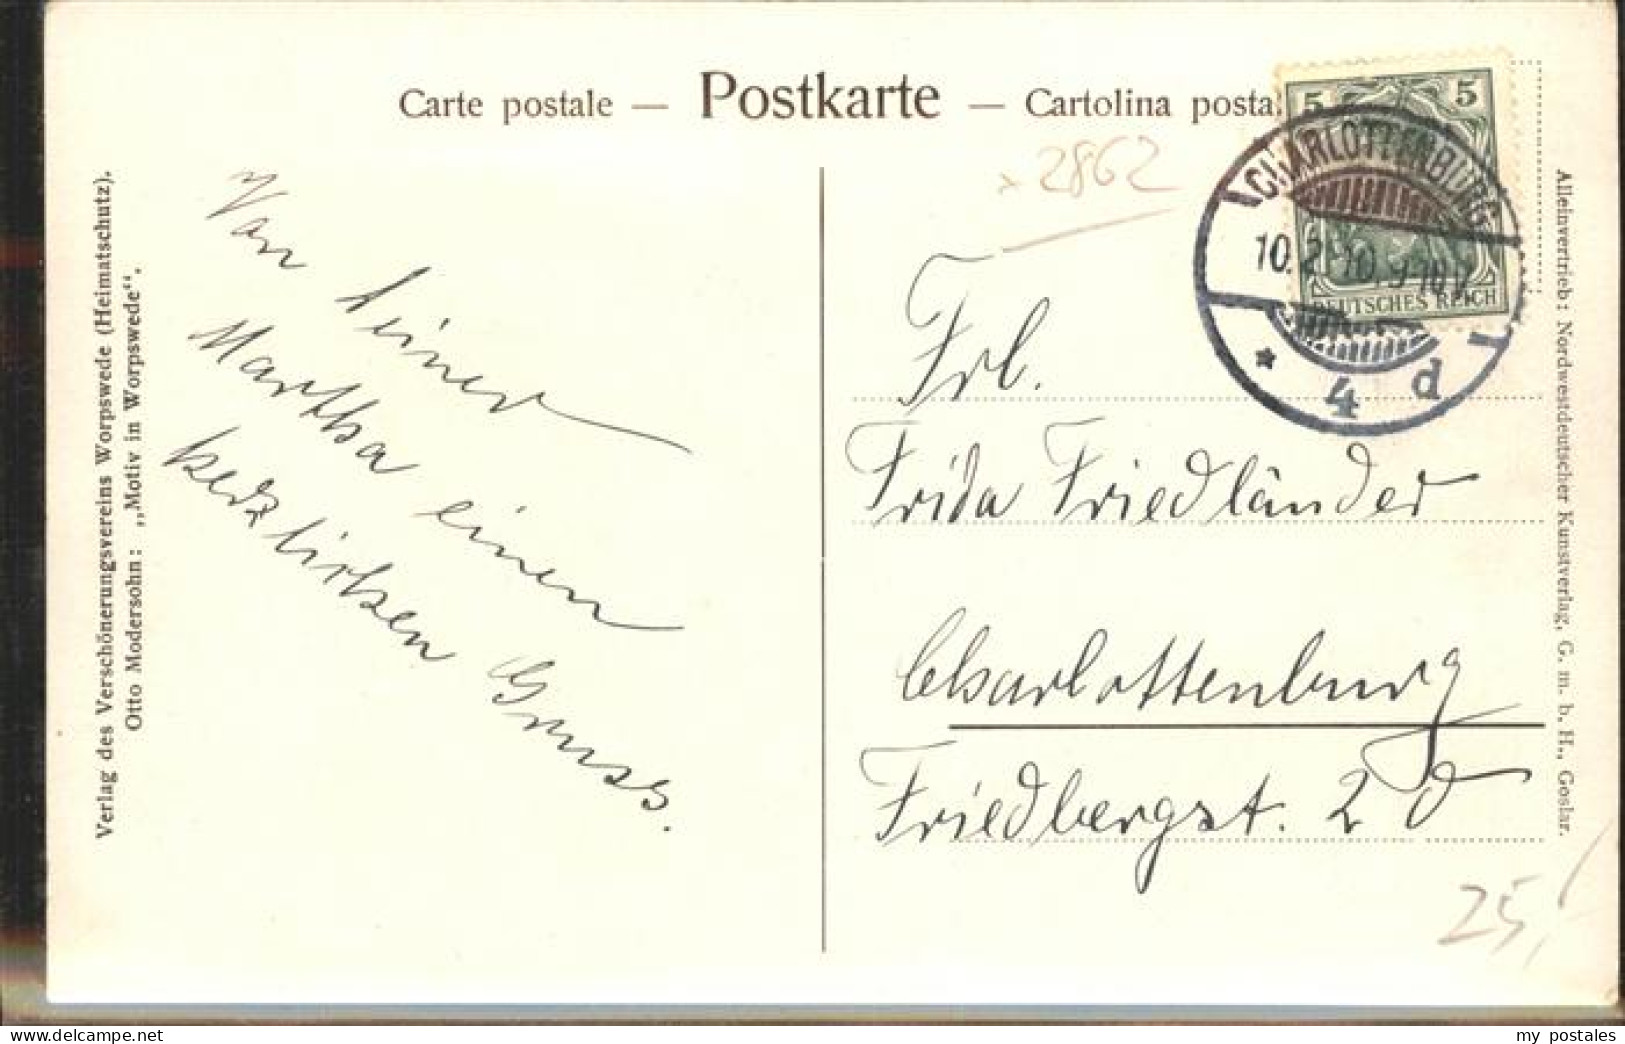 Carte postale — Postkarte — Cartolina posta
x 2862
5 5
DEUTSCHES REICH
CHARLOTTENBURG
10.2.10.9-10V.
* 4 d
Verlag des Verschönerungsvereins Worpswede (Heimatschutz).
Otto Modersohn: „Motiv in Worpswede“.
Von Deiner
Martha einen
herzlichen Gruss.
Frl.
Frida Friedländer
Charlottenburg
Friedbergst. 20
25,-
Alleinvertrieb: Nordwestdeutscher Kunstverlag, G. m. b. H., Goslar.
www.delcampe.net
my_postales